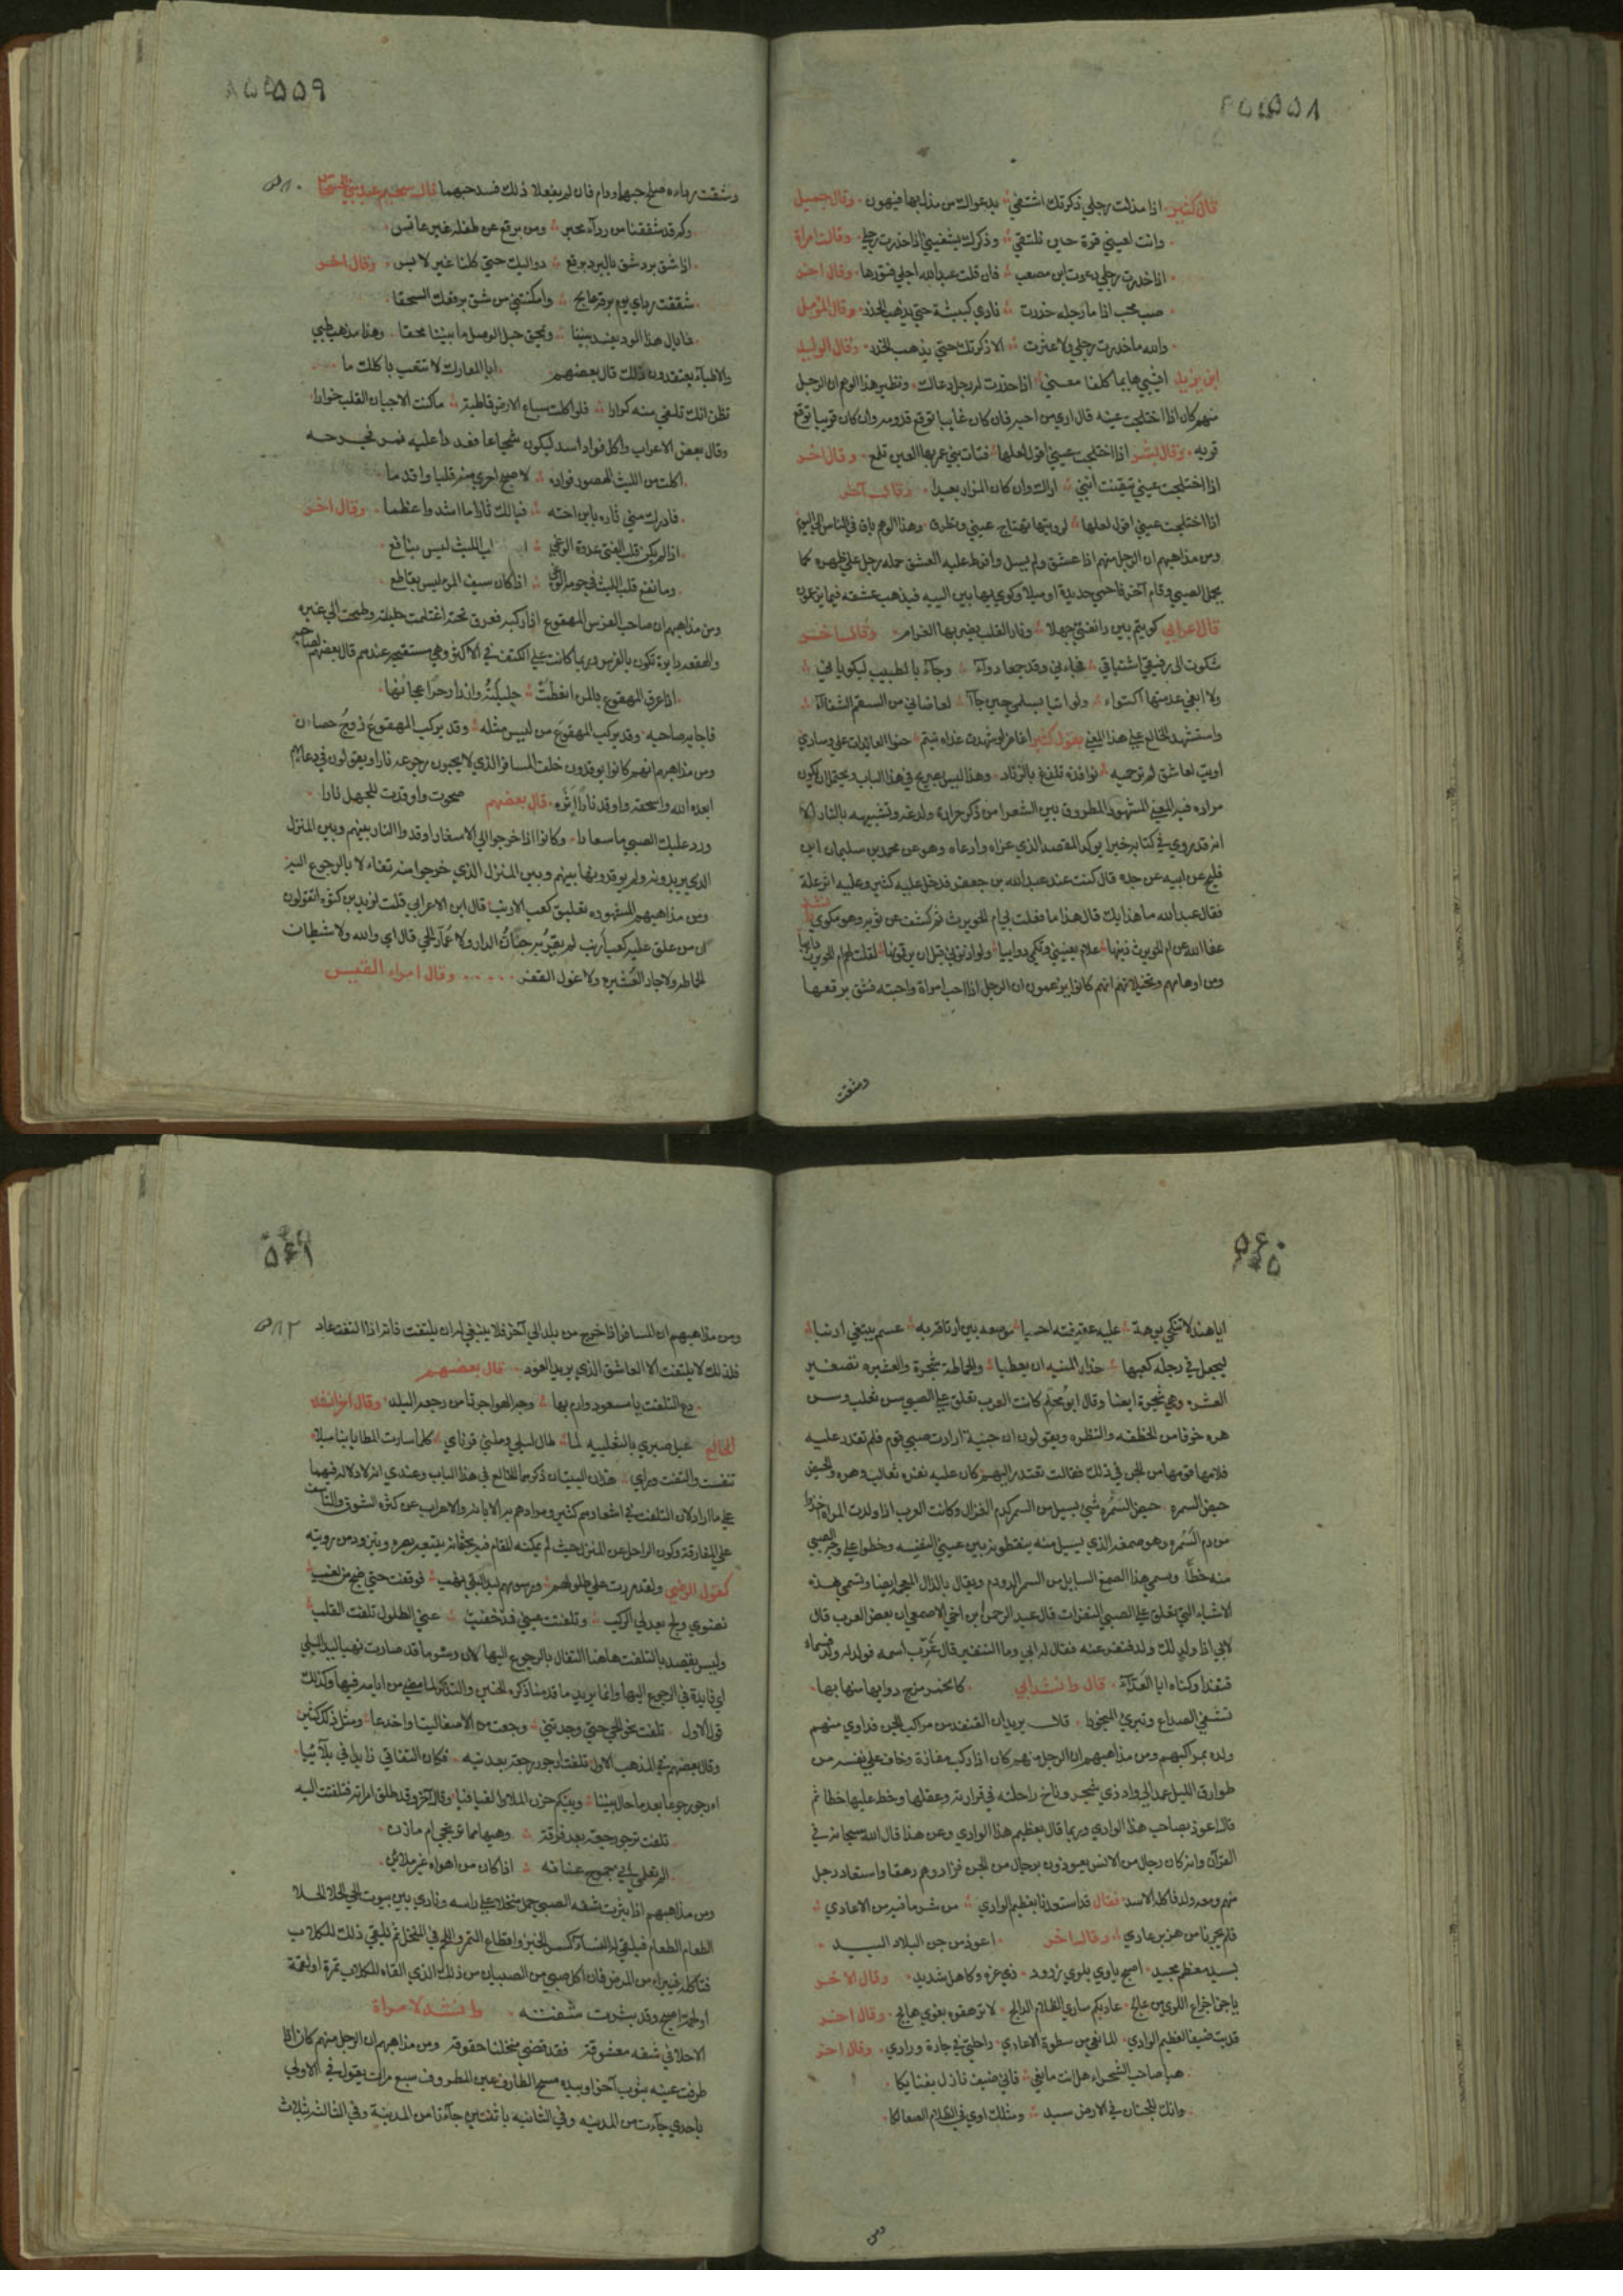 ۵۵۸
قال كثير اذا مذلت رجلي ذكرتك اشتفي بدعواك من مذل بها فيهون وقال جميل
وانت لعيني قرة حين نلتقي وذكرك يشفيني اذا خدرت رجلي وقالت امراة
اذا خدرت رجلي دعوت ابن مصعب فان قلت عبدالله اجلي فتورها وقال اخر
صب محب اذا ما رجله خدرت نادي كبيشة حتي يذهب الخدر وقال المؤمل
والله ما خدرت رجلي ولا عثرت الا ذكرتك حتي يذهب الخدر وقال الوليد
ابن يزيد اثيبي هايما كلفا معني اذا خدرت له رجل دعاك ونظير هذا الوهم ان الرجل
منهم كان اذا اختلجت عينه قال اري من احبه فان كان غايبا توقع قدومه وان كان قريبا توقع
قربه وقال بشر اذا اختلجت عيني اقول لعلها فتاة بني عمرو بها العين تلمع وقال اخر
اذا اختلجت عيني تيقنت انني اراك وان كان المزار بعيدا وقال آخر
اذا اختلجت عيني اقول لعلها لرؤيتها تهتاج عيني وتطرف وهذا الوهم باق في الناس الي اليوم
ومن مذاهبهم ان الرجل منهم اذا عشق ولم يسل وافرط عليه العشق حمله رجل علي ظهره كما
يحمل الصبي وقام آخر فاحمي حديدة او ميلا وكوي به بين اليتيه فيذهب عشقه فيما يزعمون
قال اعرابي كويتم بين رانفتي جهلا ونار القلب يضرمها الغرام وقال اخر
شكوت الي رفيقي اشتياقي فجاءني وقد جمعا دوآء وجآء بالطبيب ليكوياني
ولا ابغي عدمتهما اكتواء ولو اتيا بسلمي حين جاآ لعاضاني من السقم الشفاء
واستشهد الخالع علي هذا المعني بقول كثير اغاضر لو شهدت غداة بنتم حنو العائدات علي وسادي
اويت لعاشق لم ترحميه نوافذه تلذع بالزناد وهذا ليس بصريح في هذا الباب ويحتمل ان يكون
مراده فيه المعني المشهور المطروق بين الشعرا من ذكر حرارة ولدغه وتشبيهه بالنار الا
انه قد روي في كتابه خبرا يؤكد المقصد الذي عزاه وادعاه وهو عن محمد بن سليمان ابن
فليح عن ابيه عن جده قال كنت عند عبدالله بن جعفر فدخل عليه كثير وعليه اثر علة
فقال عبدالله ما هذا بك قال هذا ما فعلت بي ام الحويرث ثم كشف عن ثوبه وهو مكوي
عفا الله عن ام الحويرث ذنبها علام تعنيني وتكمي دوائيا ولو اذنوني قبل ان يرقموا بها لقلت لهم ام الحويرث دائيا
ومن اوهامهم وتخيلاتهم انهم كانوا يزعمون ان الرجل اذا احب امراة واحبته فشق برقعها
وشقت
۵۵۹
وشقت رداءه صلح حبهما ودام فان لم يفعلا ذلك فسد حبهما قال سحيم عبد بني الحسحاس
وكم قد شققنا من ردآء محبر ومن برقع عن طفلة غير عانس
اذا شق برد شق بالبرد برقع دواليك حتي كلنا غير لابس وقال اخر
شققت رداي يوم برقة عالج وامكنتني من شق برقعك السحقا
فما بال هذا الود يفسد بيننا ويمحق حبل الوصل ما بيننا محقا وهذا مذهب طبي
والاطباء يعتقدون ذلك قال بعضهم ابا المعارك لا تتعب باكلك ما
تظن انك تلقي منه كرارا فلو اكلت سباع الارض قاطبة ما كنت الا جبان القلب خوارا
وقال بعض الاعراب واكل فواد اسد ليكون شجاعا فعدا عليه نمر فجرحه
اكلت من الليث الهصور فواده لاصبح اجري منه قلبا واقدما
فادرك مني ثاره بابن اخته فيا لك ثارا ما اشد واعظما وقال اخر
اذا لم يكن قلب الفتي غدوة الوغي قلب الليث ليس بنافع
وما نفع قلب الليث في حومة الوغي اذا كان سيف المرء ليس بقاطع
ومن مذاهبهم ان صاحب الفرس المهقوع اذا ركبه فعرق تحته اغتلمت حليلته وطمحت الي غيره
والهقعه دايرة تكون بالفرس وربما كانت علي الكتف في الاكثر وهي مستقبحة عندهم قال بعضهم لصاحبه
اذا عرق المهقوع بالمرء انعظت حليلته وازداد حرا عجانها
فاجابه صاحبه وقد يركب المهقوع من ليس مثله وقد يركب المهقوع زوج حصان
ومن مذاهبهم انهم كانوا يوقدون خلف المسافر الذي لا يحبون رجوعه نارا ويقولون في دعائهم
ابعده الله واسحقه واوقد نارا اثره قال بعضهم صحوت واوقدت للجهل نارا
ورد عليك الصبي ما استعارا وكانوا اذا خرجوا الي الاسفار اوقدوا النار بينهم وبين المنزل
الذي يريدونه ولم يوقدوها بينهم وبين المنزل الذي خرجوا منه تفاءلا بالرجوع اليه
ومن مذاهبهم المشهوره تعليق كعب الارنب قال ابن الاعرابي قلت لزيد بن كثوه اتقولون
ان من علق عليه كعب ارنب لم يقربه جنان الدار ولا عمار الحي قال اي والله ولا شيطان
الحماطه ولا جار العشيره ولا غول القفر وقال امرء القيس
۵۶۰
ايا هند لا تنكحي بوهة عليه عقيقته احسبا مرسعة بين ارباقه به عسم يبتغي ارنبا
ليجعل في رجله كعبها حذار المنيه ان يعطبا والحماطة شجرة والعشيره تصغير
العشر وهي شجرة ايضا وقال ابو محلم كانت العرب تعلق علي الصبي سن ثعلب وسن
هره خوفا من الخطفه والنظره ويقولون ان جنية ارادت صبي قوم فلم تقدر عليه
فلامها قومها من الجن في ذلك فقالت تعتذر اليهم كان عليه نفره ثعالب وهرره والحيض
حيض السمره حيض السمره شي يسيل من السمر كدم الغزال وكانت العرب اذا ولدت المراه اخذوا
من دم السمره وهو صمغه الذي يسيل منه ينقطونه بين عيني النفسه وخطوا علي وجه الصبي
منه خطا ويسمي هذا الصمغ السايل من السمر الدودم ويقال بالذال المعجمه ايضا وتسمي هذه
الاشياء التي تعلق علي الصبي النفرات قال عبد الرحمن ابن اخي الاصمعي ان بعض العرب قال
لابي اذا ولد لك ولد فنفر عنه فقال له ابي وما التنفير قال غرب اسمه فولد له ولد فسماه
قنفذا وكناه ابا العدآء قال وانشد ابي كالخمر مزج دوايها منها بها
تشفي الصداع وتبري المنجودا قال يريد ان القنفذ من مراكب الجن فداوي منهم
ولده بمراكبهم ومن مذاهبهم ان الرجل منهم كان اذا ركب مفازة وخاف علي نفسه من
طوارق الليل عمد الي واد ذي شجر وناخ راحلته في قرارته وعقلها وخط عليها خطا ثم
قال اعوذ بصاحب هذا الوادي وربما قال بعظيم هذا الوادي وعن هذا قال الله سبحانه في
القرآن وانه كان رجال من الانس يعوذون برجال من الجن فزادوهم رهقا واستعاذ رجل
منهم ومعه ولد فاكله الاسد فقال قد استعذنا بعظيم الوادي من شر ما فيه من الاعادي
فلم يجرنا من هزبر عادي وقال اخر اعوذ من جن البلاد البيد
بسيد معظم مجيد اصبح ياوي بلوي زرود ذي عزة وكاهل شديد وقال الاخر
يا جن اجزاع اللوي من عالج عاذ بكم ساري الظلام الدالج لا ترهقوه بغوي هايج وقال اخر
قد بت ضيفا لعظيم الوادي المانعي من سطوة الاعادي راحلتي في جاره وزادي وقال اخر
هيا صاحب الشجراء هل انت مانعي فاني ضيف نازل بفنايكا
وانك للجنان في الارض سيد ومثلك اوي في الظلام الصعالكا
ومن
۵۶۱
ومن مذاهبهم ان المسافر اذا خرج من بلد الي آخر فلا ينبغي له ان يلتفت فانه اذا التفت عاد
فلذلك لا يلتفت الا العاشق الذي يريد العود قال بعضهم
دع التلفت يا مسعود وارم بها وجه الهواجر تامن رجعة البلد وقال اخر انشده
الخالع عيل صبري بالثعلبيه لما طال ليلي وملني قرنائي كلما سارت المطايا بنا ميلا
تنفست والتفت ورائي هذان البيتان ذكرهما الخالع في هذا الباب وعندي انه لا دلالة فيهما
علي ما اراد لان التلفت في اشعارهم كثير ومرادهم به الابانه والاعراب عن كثرة الشوق والتاسف
علي المفارقة وكون الراحل عن المنزل حيث لم يمكنه المقام فيه بجثمانه يتبعه بصره ويتزود من رؤيته
كقول الرضي ولقد مررت علي طلولهم ورسومهم بيد البلي نهب فوقفت حتي ضج من لغب
نضوي ولج بعدلي الركب وتلفتت عيني فمذ خفيت عني الطلول تلفت القلب
وليس يقصد بالتلفت هاهنا التفال بالرجوع اليها لان رسومها قد صارت نهبا ليد البلي
اي فايدة في الرجوع اليها وانما يريد ما قدمنا ذكره من الحنين والتذكر لما مضي من ايامه فيها وكذلك
قول الاول تلفت نحو الحي حتي وجدتني وجعت من الاصغاء ليتا واخدعا ومثل ذلك كثير
وقال بعضهم في المذهب الاول تلفت ارجو رجعة بعد نيه فكان التفاتي زايدا في بلآئيا
اارجو رجوعا بعد ما حال بيننا وبينكم حزن الملا والفيافيا وقال آخر وقد طلق امراته فتلفتت اليه
تلفت ترجو رجعة بعد فرقة وهيهات مما ترتجي ام مازن
الم تعلمي اني جموح عنانه اذا كان من اهواه غير ملاين
ومن مذاهبهم اذا بثرت شفه الصبي حمل منخلا علي راسه ونادي بين بيوت الحي الحلا الحلا
الطعام الطعام فيلقي له النساء كسر الخبز واقطاع التمر واللحم في المنخل ثم يلقي ذلك للكلاب
فتاكله فيبرا من المرض فان اكل صبي من الصبيان من ذلك الذي القاه للكلاب تمرة او لقمة
او لحمة اصبح وقد بثرت شفته وانشد لامراة
الا حلا في شفه مشقوقه فقد قضي منخلنا حقوقه ومن مذاهبهم ان الرجل منهم كان اذا
طرفت عينه بثوب آخر او بيده مسح الطارف عين المطروف سبع مرات يقول في الاولي
باحدي جآءت من المدينه وفي الثانيه باثنتين جآءتا من المدينة وفي الثالثه بثلاث